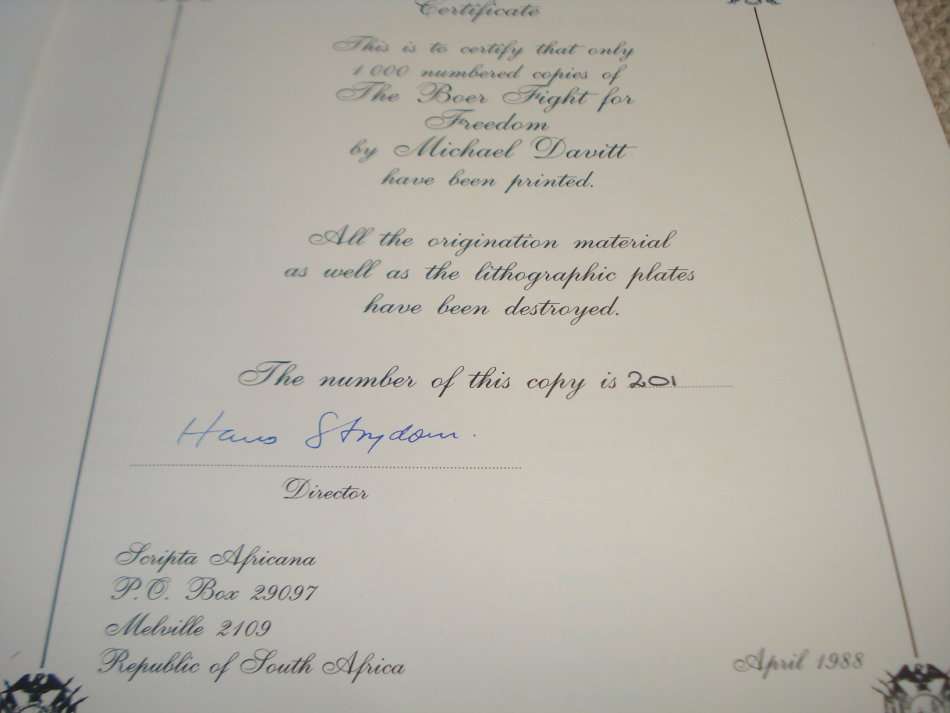 Certificate
This is to certify that only
1 000 numbered copies of
The Boer Fight for
Freedom
by Michael Davitt
have been printed.
All the origination material
as well as the lithographic plates
have been destroyed.
The number of this copy is 201
Hans Strydom.
Director
Scripta Africana
P.O. Box 29097
Melville 2109
Republic of South Africa
April 1988